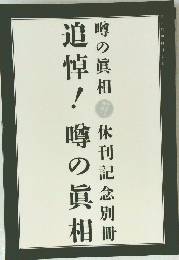 噂の眞相 休刊記念別冊
追悼!噂の眞相